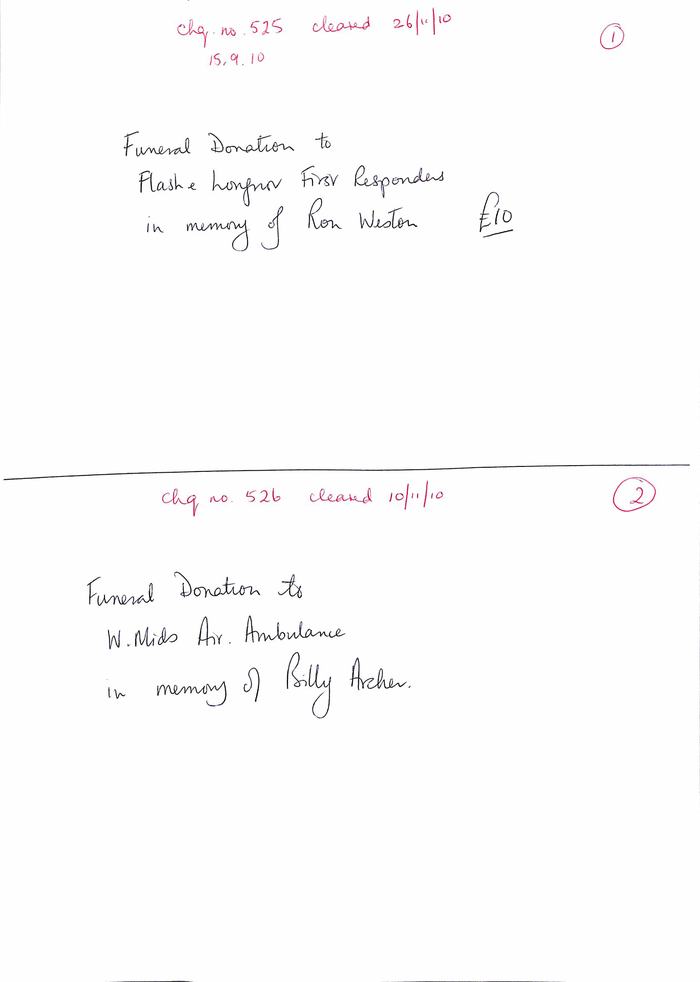 chq. no. 525 cleared 26/11/10
1
15.9.10
Funeral Donation to
Flash & Longnor First Responders
in memory of Ron Weston £10
chq no. 526 cleared 10/11/10
2
Funeral Donation to
W. Mids Air. Ambulance
in memory of Billy Archer.